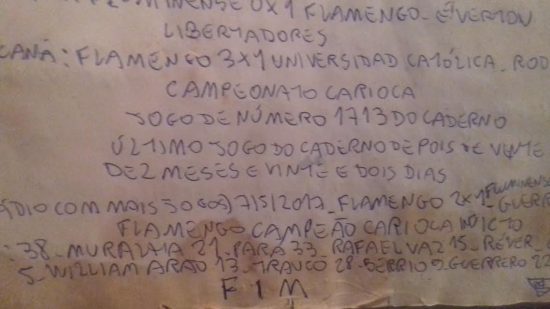 MINENSE 0X1 FLAMENGO_ÉVERTON
LIBERTADORES
CANÃ: FLAMENGO 3X1 UNIVERSIDAD CATÓLICA_ROD
CAMPEONATO CARIOCA
JOGO DE NÚMERO 1713 DO CADERNO
ÚLTIMO JOGO DO CADERNO DEPOIS DE VINTE
DE 2 MESES E VINTE E DOIS DIAS
ÁDIO COM MAIS JOGOS) 7/5/2017_FLAMENGO 2X1 FLUMINENSE_GUERR
FLAMENGO CAMPEÃO CARIOCA INVICTO
:38_MURALHA 21_PARÁ 33_RAFAEL VAZ 15_RÉVER_
5_WILLIAM ARÃO 13_TRAUCO_28_BERRÍO 9_GUERRERO 22
FIM